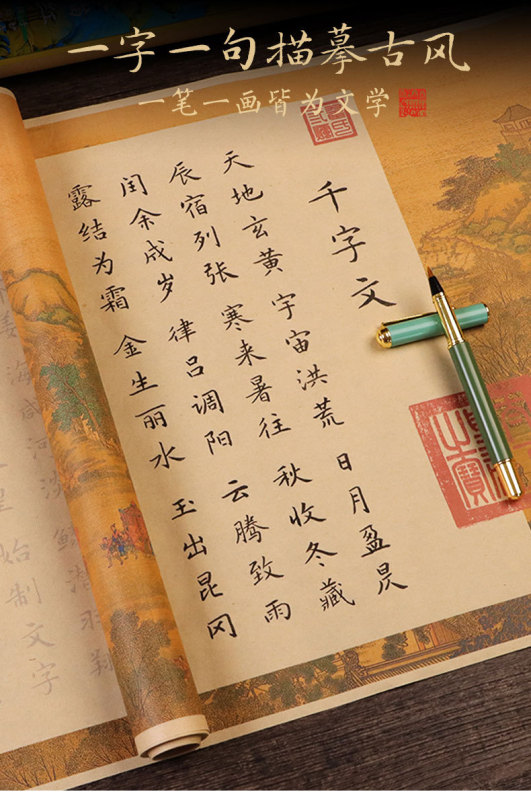 一字一句描摹古风
一笔一画皆为文学
千字文
天地玄黄 宇宙洪荒 日月盈昃
辰宿列张 寒来暑往 秋收冬藏
闰余成岁 律吕调阳 云腾致雨
露结为霜 金生丽水 玉出昆冈
姜 海咸河淡 鳞潜羽翔
人皇 始制文字